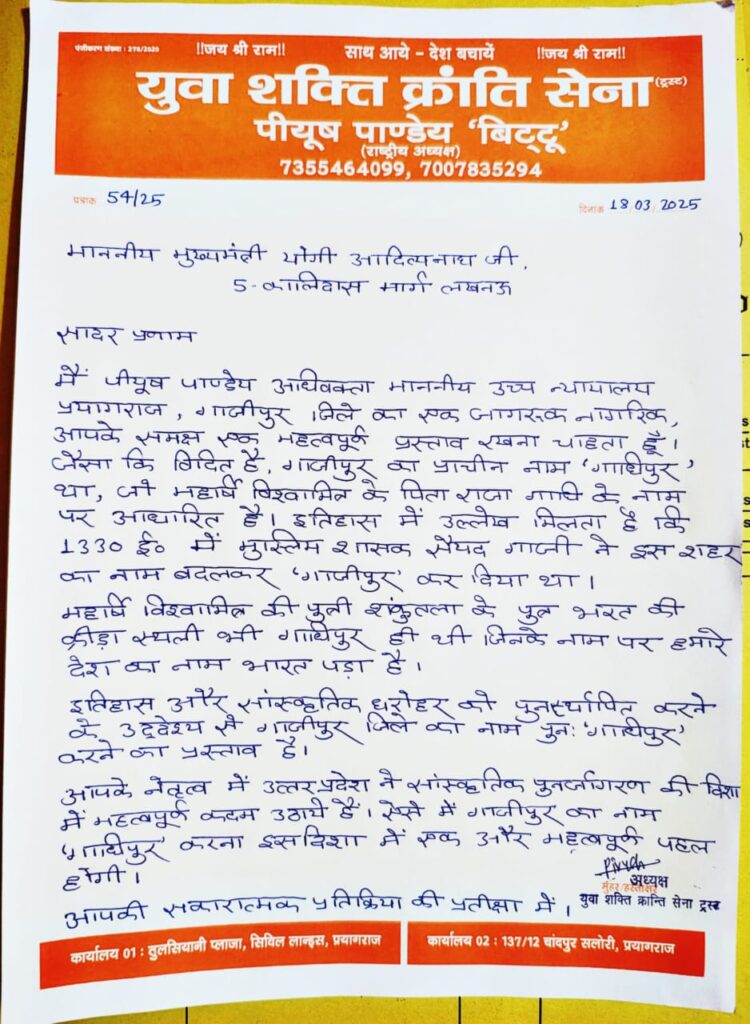 पंजीकरण संख्या : 278/2020
!!जय श्री राम!! साथ आये - देश बचायें !!जय श्री राम!!
युवा शक्ति क्रांति सेना (ट्रस्ट)
पीयूष पाण्डेय 'बिट्टू'
(राष्ट्रीय अध्यक्ष)
7355464099, 7007835294
पत्राक 54/25 दिनाक 18.03.2025
माननीय मुख्यमंत्री योगी आदित्यनाथ जी,
5-कालिदास मार्ग लखनऊ
सादर प्रणाम
मैं पीयूष पाण्डेय अधिवक्ता माननीय उच्च न्यायालय
प्रयागराज, गाजीपुर जिले का एक जागरूक नागरिक,
आपके समक्ष एक महत्वपूर्ण प्रस्ताव रखना चाहता हूँ।
जैसा कि विदित है, गाजीपुर का प्राचीन नाम 'गाधिपुर'
था, जो महार्षि विश्वामित्र के पिता राजा गाधि के नाम
पर आधारित है। इतिहास में उल्लेख मिलता है कि
1330 ई० में मुस्लिम शासक सैयद गाजी ने इस शहर
का नाम बदलकर 'गाजीपुर' कर दिया था।
महार्षि विश्वामित्र की पुत्री शंकुतला के पुत्र भरत की
क्रीड़ा स्थली भी गाधिपुर ही थी जिनके नाम पर हमारे
देश का नाम भारत पड़ा है।
इतिहास और सांस्कृतिक धरोहर को पुनर्स्थापित करने
के उद्देश्य से गाजीपुर जिले का नाम पुनः 'गाधिपुर'
करने का प्रस्ताव है।
आपके नेतृत्व में उत्तरप्रदेश ने सांस्कृतिक पुनर्जागरण की दिशा
में महत्वपूर्ण कदम उठाये हैं। ऐसे में गाजीपुर का नाम
'गाधिपुर' करना इस दिशा में एक और महत्वपूर्ण पहल
होगी।
अध्यक्ष
मुहर/हस्ताक्षर
युवा शक्ति क्रान्ति सेना ट्रस्ट
आपकी सकारात्मक प्रतिक्रिया की प्रतीक्षा में।
कार्यालय 01 : तुलसियानी प्लाजा, सिविल लान्इस, प्रयागराज कार्यालय 02 : 137/12 चांदपुर सलोरी, प्रयागराज